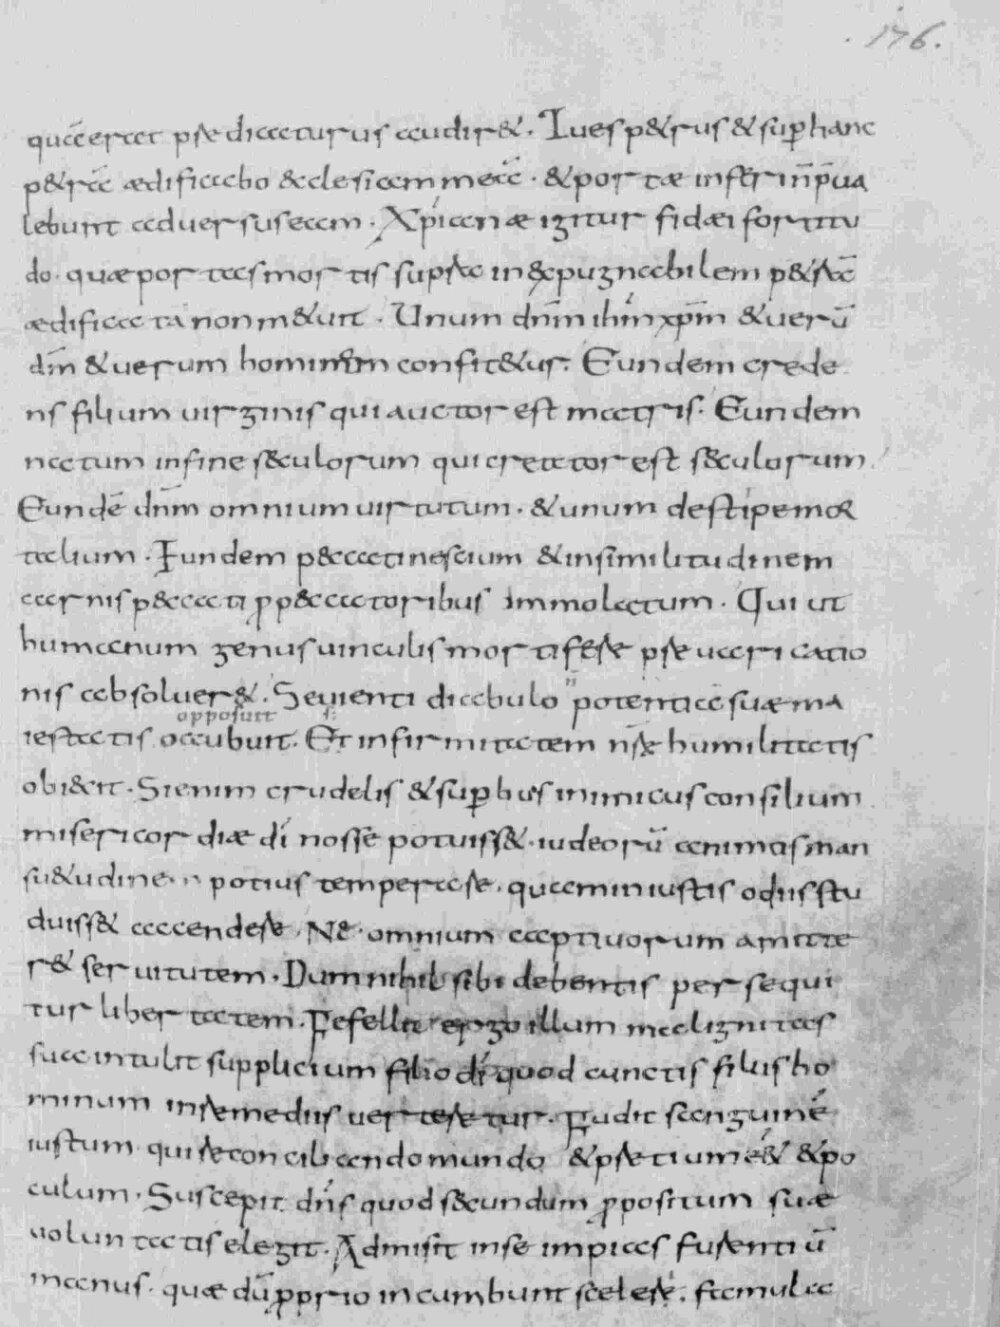 .176.
quā erat p̄dicaturus audir&. Tu es p&rus & sup hanc
p&rā ædificabo ecclesiam meā. & portæ inferi n̄ p̄ua
lebunt aduersus eam. Xp̄ianæ igitur fidæi fortitu
do. quæ portas mortis supra inexpugnabilem p&rā
ædificata non m&uit. Unum dn̄m ihm̄ xp̄m & uerū
dm̄ & uerum hominem confit&ur. Eundem crede
ns filium uirginis qui auctor est matris. Eundem
natum in fine sæculorum qui creator est sæculorum.
Eundē dn̄m omnium uirtutum. & unum de stipe mor
talium. Eundem peccati nescium & in similitudinem
carnis peccati p peccatoribus immolatum. Qui ut
humanum genus uinculis mortiferæ præuaricatio
nis absoluer&. Seuienti diabulo potentiā suæ ma
opposuit
iestatis occubuit. Et infirmitatem nr̄æ humilitatis
obiecit. Si enim crudelis & supbus inimicus consilium
misericordiæ dī nosse potuiss&. iudeorū animas man
su&udine potius temperare. quam iniustis odiis stu
duiss& accendere. Ne omnium captiuorum amitte
r& seruitutem. Dum nihil sibi debentis persequi
tur libertatem. Fefellit ergo illum malignitas
sua intulit supplicium filio dī quod cunctis filiis ho
minum in remediis uerteretur. Fudit sanguinē
iustum. qui reconciliando mundo & pretium ee& & po
culum. Suscepit dn̄s quod secundum ppositum suæ
uoluntatis elegit. Admisit in se impias furentiū
manus. quæ dū pprio incumbunt scelere. famula